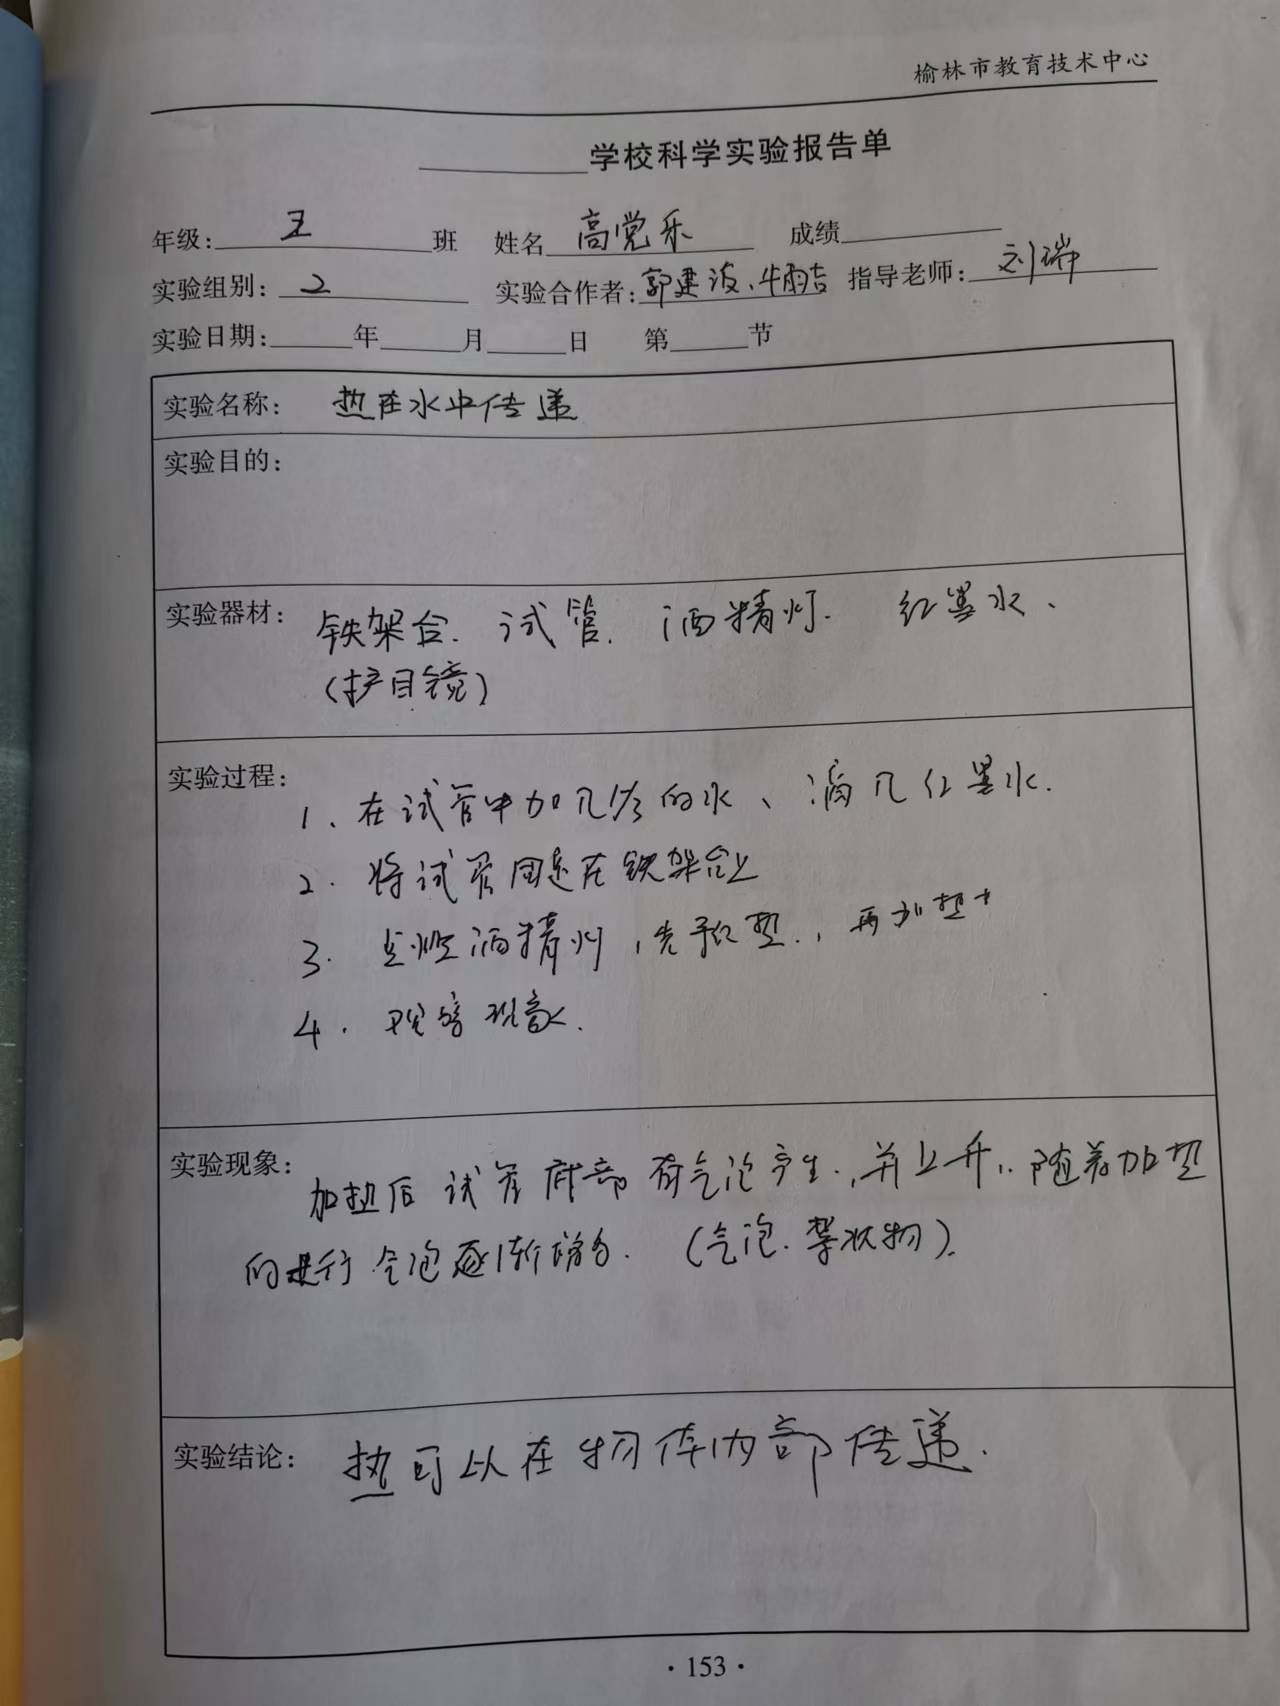 榆林市教育技术中心
学校科学实验报告单
年级: 五 班 姓名 高党乐 成绩
实验组别: 2 实验合作者: 郭建波、牛雨吉 指导老师: 刘瑞
实验日期: 年 月 日 第 节
实验名称: 热在水中传递
实验目的:
实验器材: 铁架台. 试管. 酒精灯. 红墨水、
(护目镜)
实验过程:
1、在试管中加 的水、滴几 红墨水.
2. 将试管固定在铁架台上
3. 点燃酒精灯,先预热.,再加热
4. 观察现象.
实验现象: 加热后试管底部有气泡产生.,并上升.. 随着加热
的进行气泡逐渐增多. (气泡. 絮状物).
实验结论: 热可以在物体内部传递.
·153·